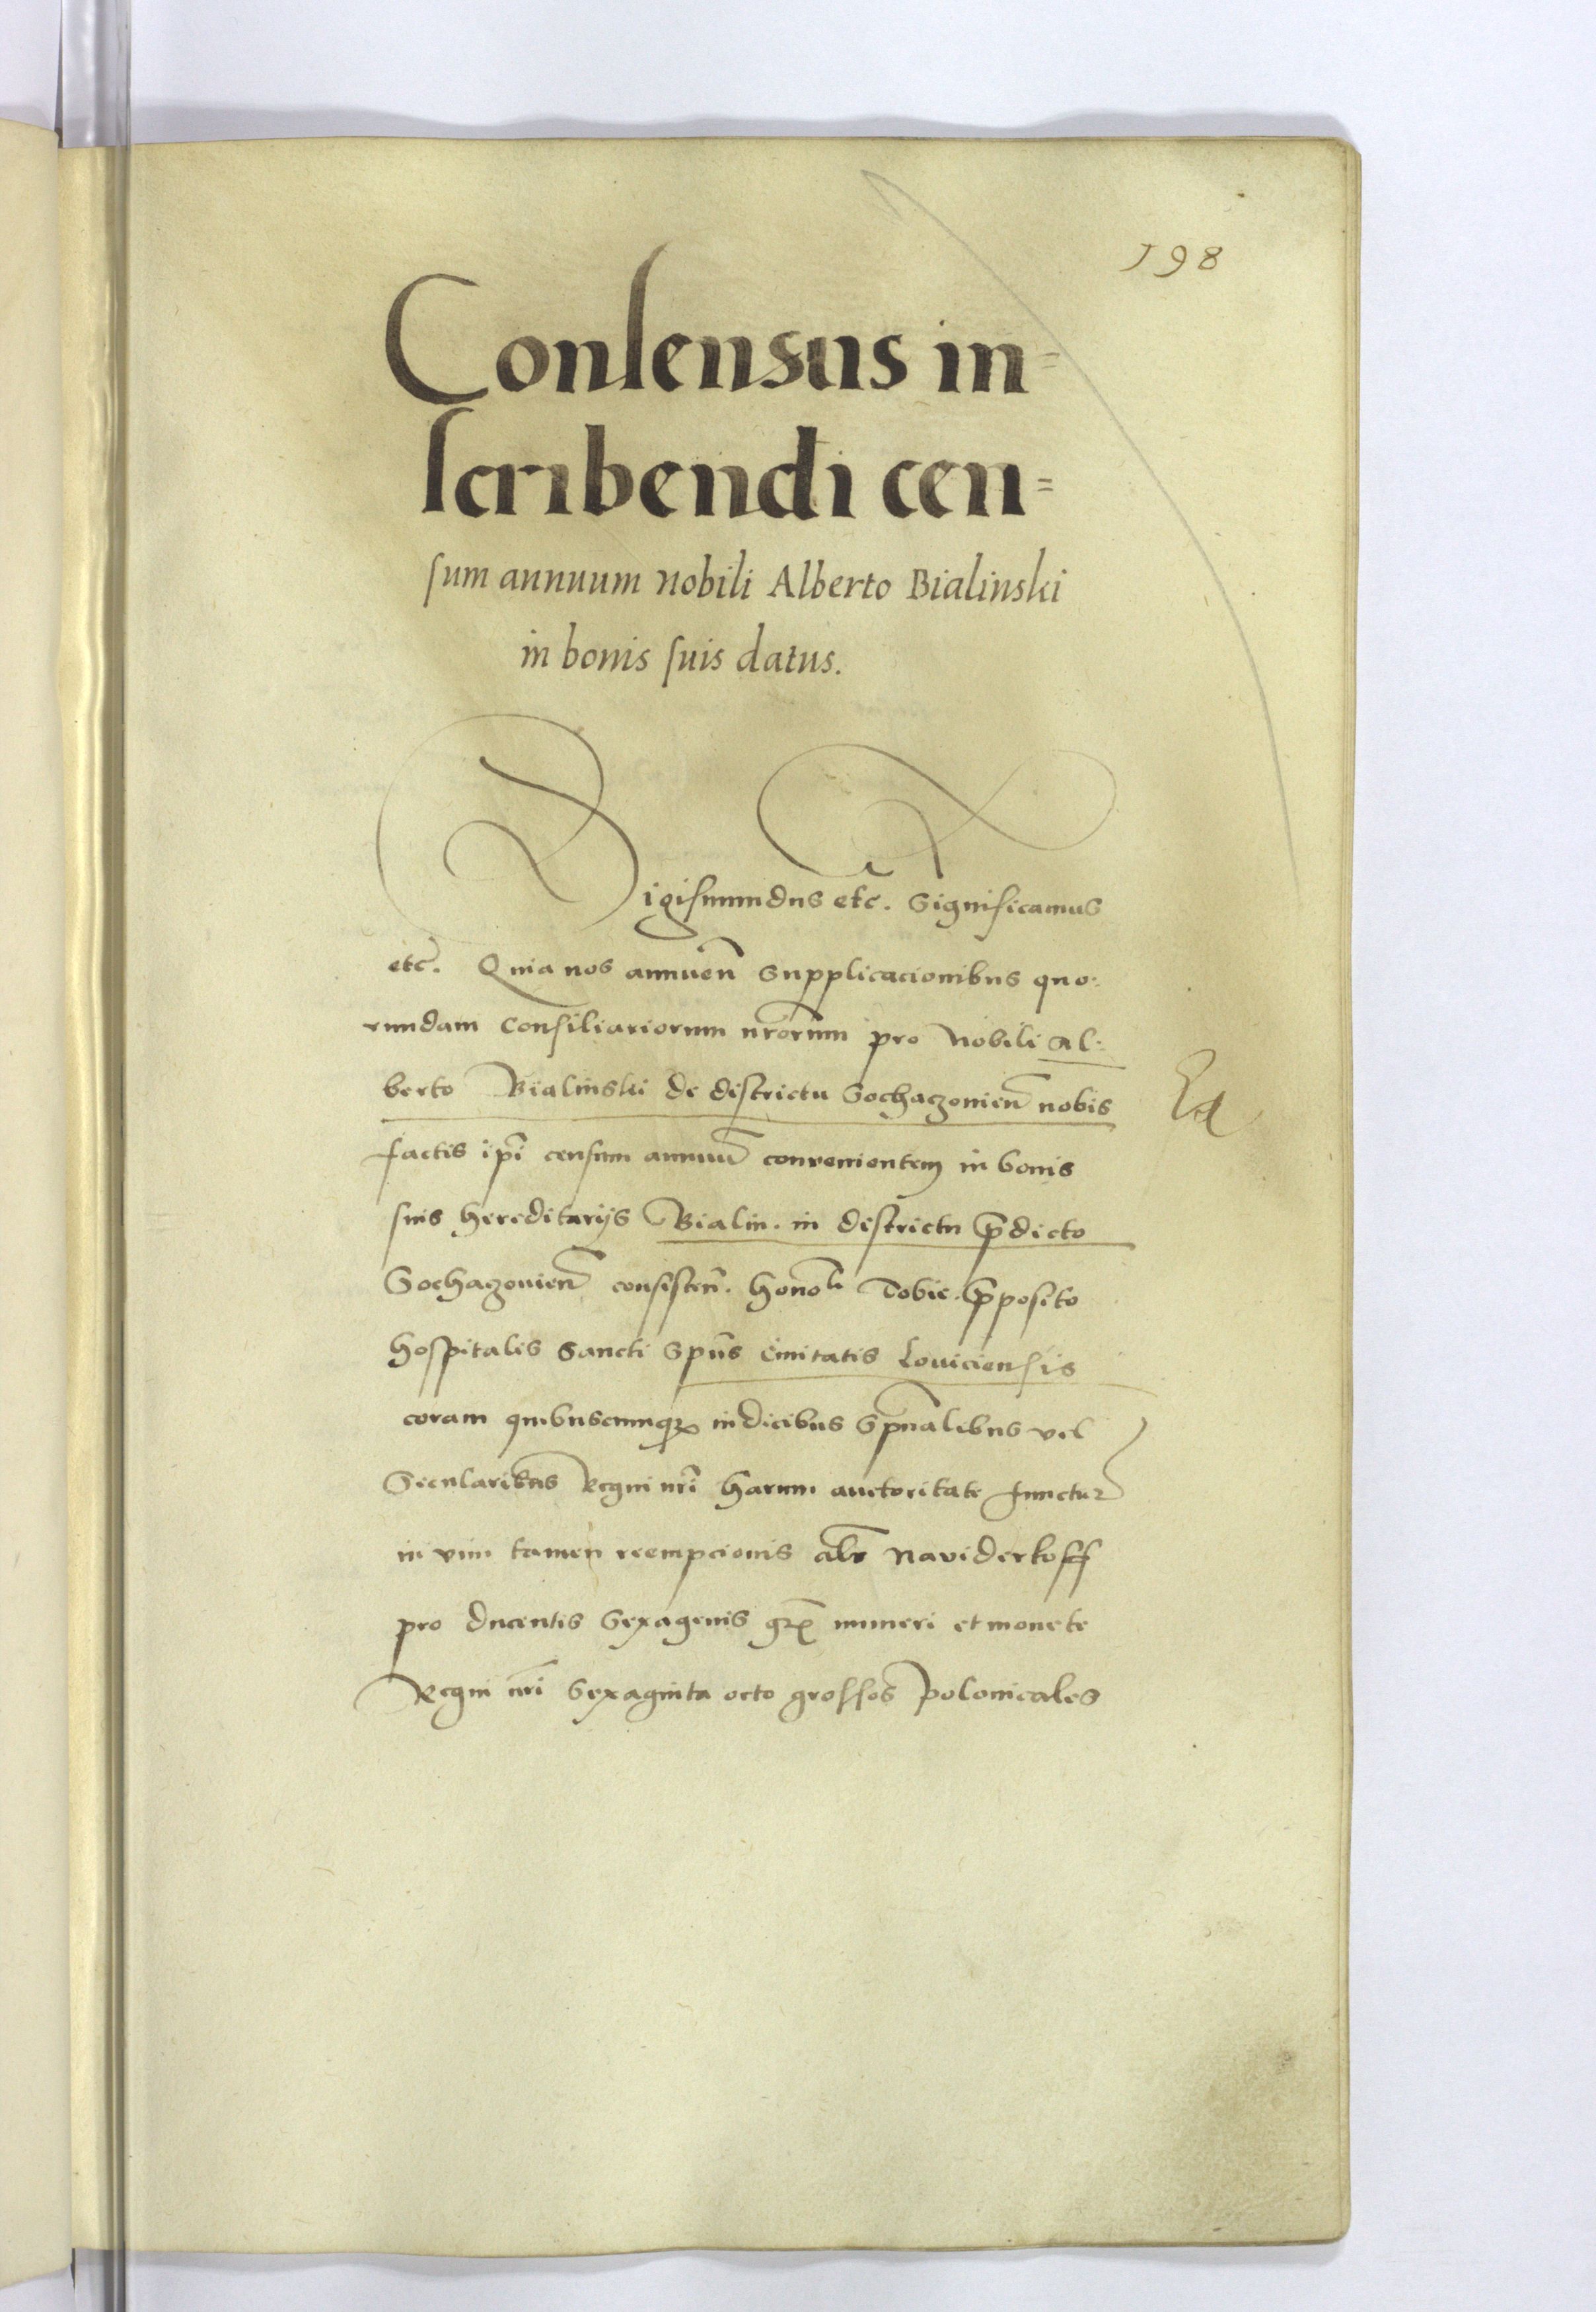 198
Consensus in=
scribendi cen=
sum annuum nobili Alberto Bialinski
in bonis suis datus.
Sigismundus etc. Significamus
etc. Quia nos annuen̄ supplicacionibus quo:
rundam Consiliariorum nr̄orum pro Nobili Al:
berto Bialinski de districtu Sochaczouien̄ nobis
factis ip̄i censum annuū convenientem in bonis
suis hereditarijs Bialin. in districtu p̄dicto
Sochaczouien̄ consisteñ. Honoli Tobie p̄posito
hospitalis Sancti Sp̄us Ciuitatis Louiciensis
coram quibuscumqꝫ iudicibus Sp̄ualibus vel
Secularibus Regni nr̄i harum auctoritate
in vim tamen reempcionis al̄s naviderkoff
pro ducentis Sexagenis numeri et monete
Regni nr̄i Sexaginta octo grossos polonicales